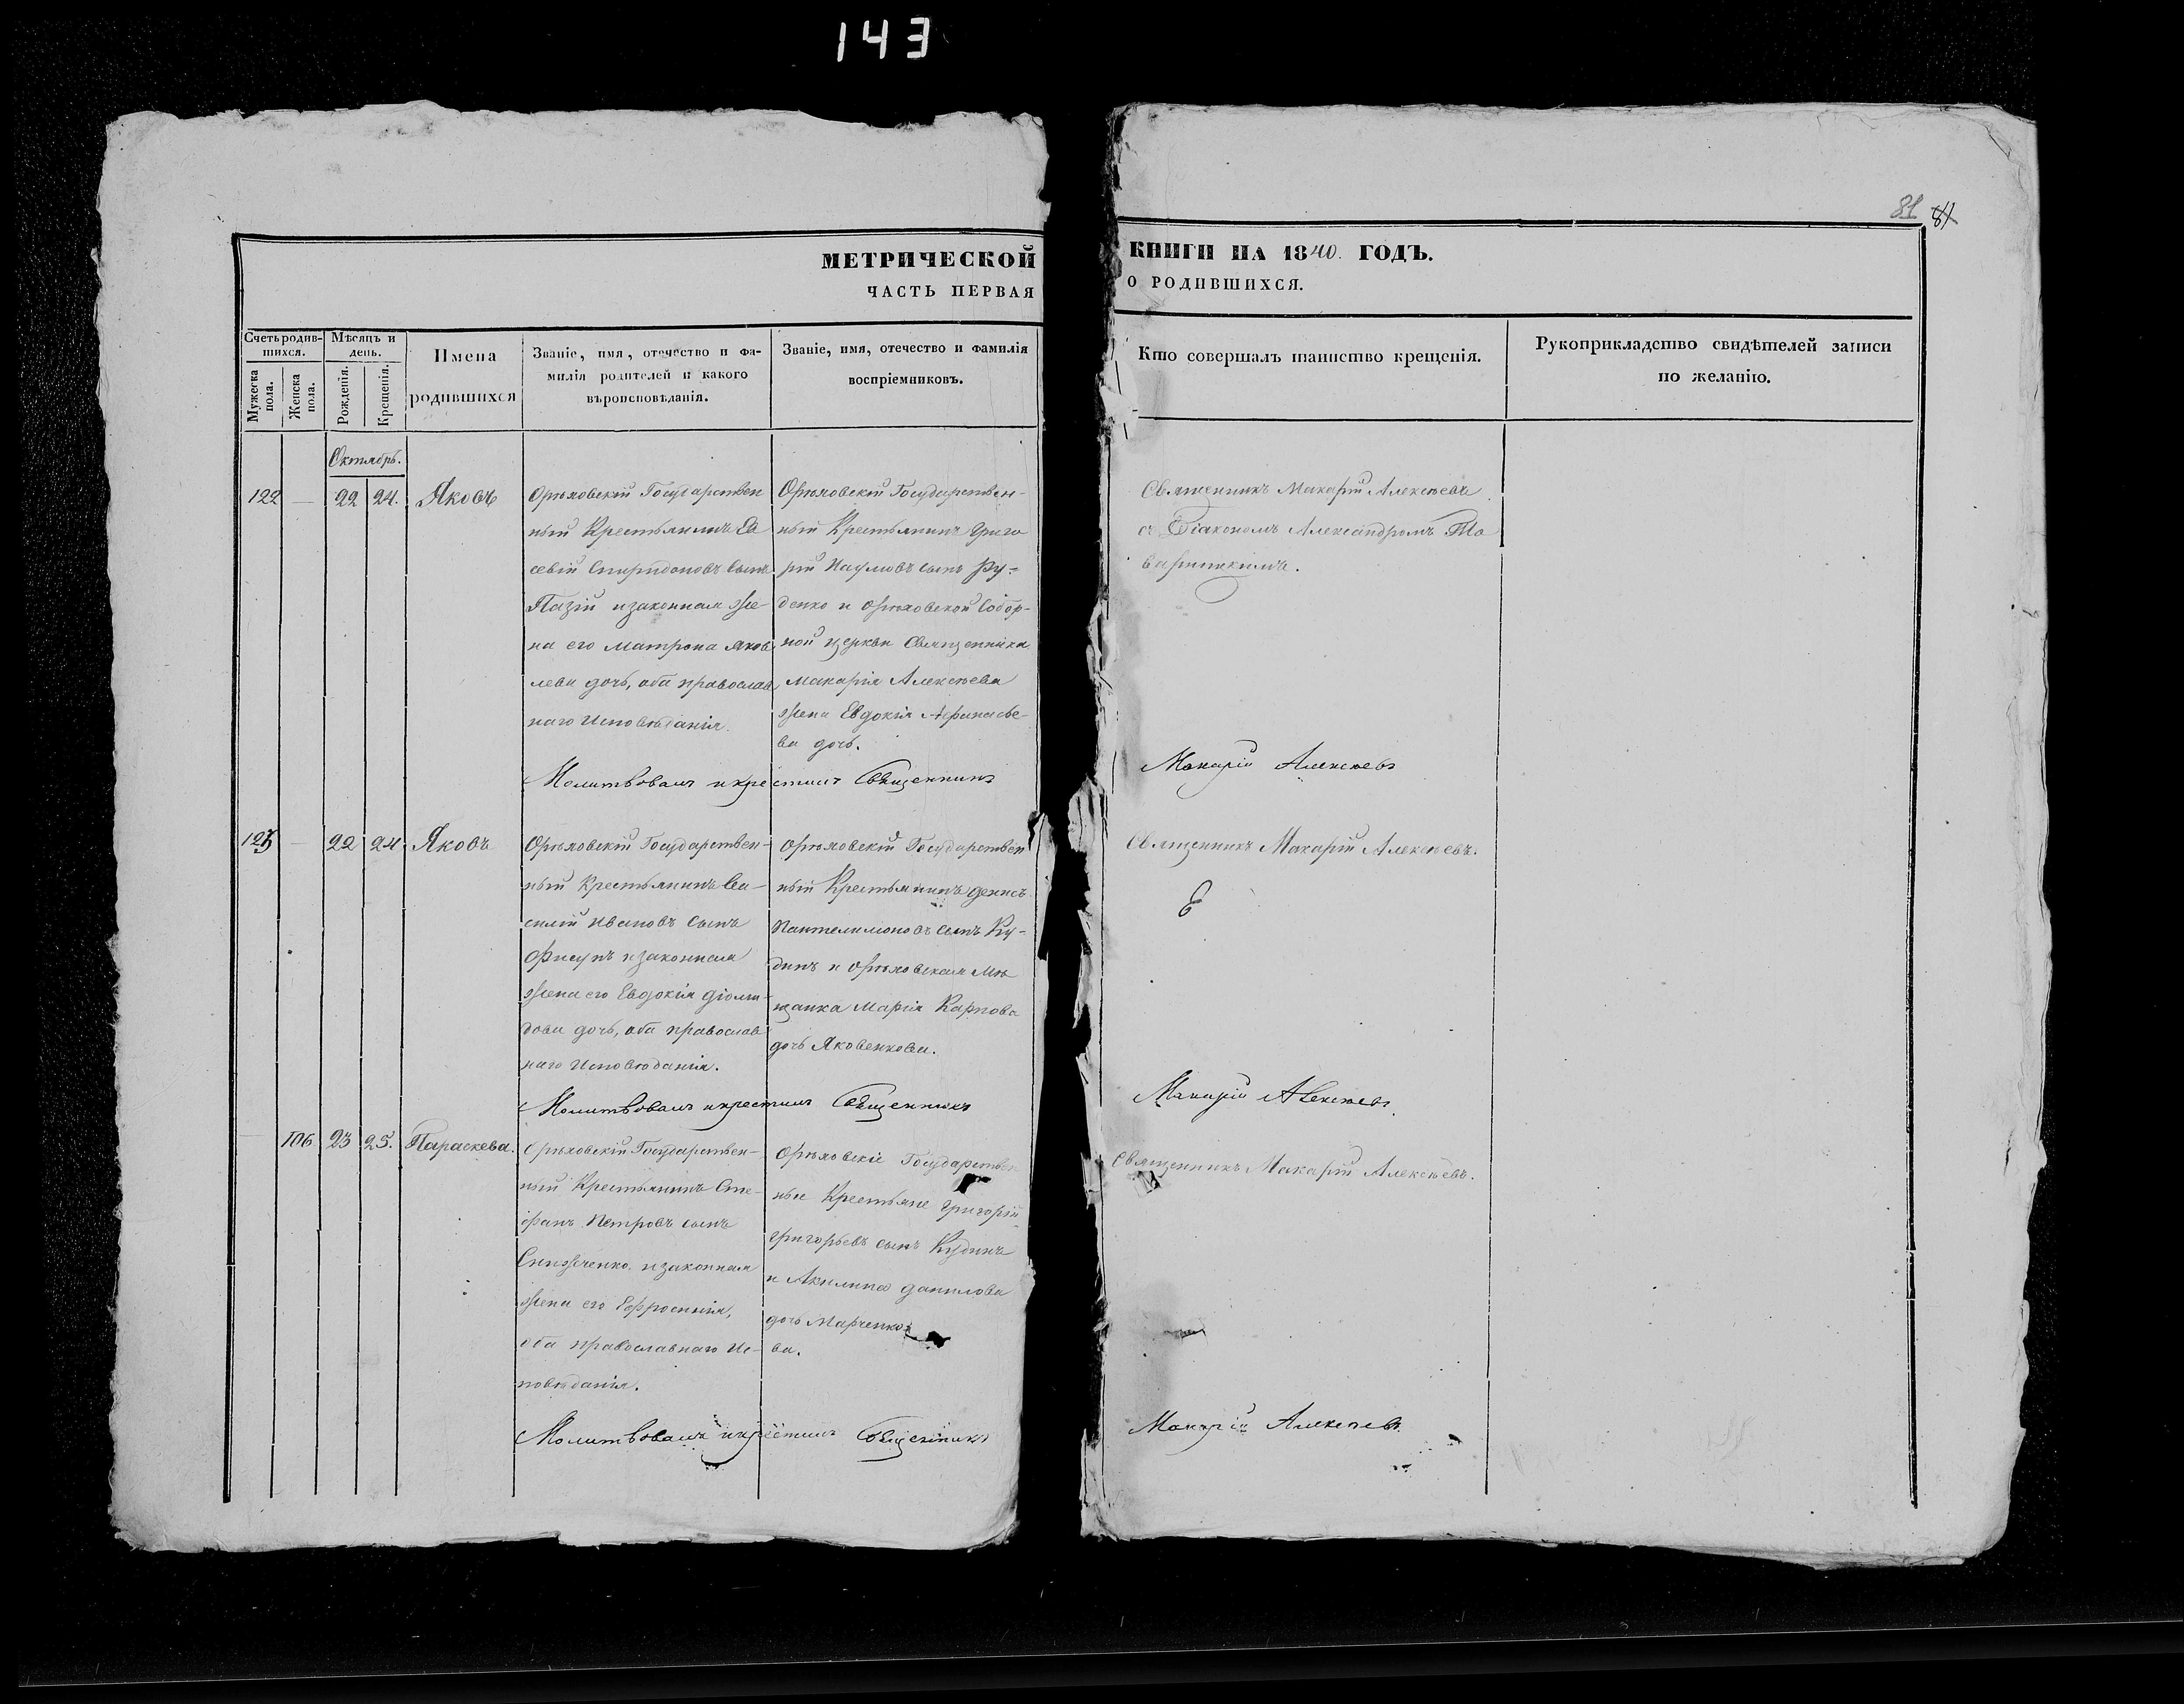 143
81 81
МЕТРИЧЕСКОЙ КНИГИ НА 1840. ГОДЪ.
ЧАСТЬ ПЕРВАЯ О РОДИВШИХСЯ.
Счетъ родив-
шихся.
Мужеска
пола.
Женска
пола.
Мѣсяцъ и
день.
Рожденія.
Крещенія.
Имена
родившихся
Званіе, имя, отечество и фа-
милія родителей и какого
вѣроисповѣданія.
Званіе, имя, отечество и фамилія
воспріемниковъ.
Кто совершалъ таинство крещенія.
Рукоприкладство свидѣтелей записи
по желанію.
Октябрь.
122 — 22 24. Яковъ
Орѣховскій Государствен
ный Крестьянинъ Ев
севій Спиридоновъ сынъ
и законная же-
на его Матрона Яков
лева дочь, оба православ
наго Исповѣданія.
Орѣховскій Государствен-
ный Крестьянинъ Григо
рій Наумовъ сынъ Ру-
денко и Орѣховской Собор-
ной церкви Священника
Макарія Алексѣева
жена Евдокія Афанасье-
ва дочь.
Священникъ Макарій Алексѣевъ
съ Діакономъ Александромъ
Молитвовалъ и крестилъ Священникъ Макарій Алексѣевъ
123 — 22 24 Яковъ
Орѣховскій Государствен-
ный Крестьянинъ Ва-
силій Ивановъ сынъ
Фисунъ и законная
жена его Евдокія Діоми-
дова дочь, оба православ
наго Исповѣданія.
Орѣховскій Государствен
ный Крестьянинъ Денисъ
Пантелимоновъ сынъ Ку-
динъ и Орѣховская Мѣ
щанка Марія Карпова
дочь Яковенкова.
Священникъ Макарій Алексѣевъ.
Молитвовалъ и крестилъ Священникъ Макарій Алексѣевъ.
— 106 23 25. Параскева.
Орѣховскій Государствен-
ный Крестьянинъ Сте-
фанъ Петровъ сынъ
и законная
жена его Ефросинія,
оба православнаго Ис-
повѣданія.
Орѣховскіе Государствен
ные Крестьяне Григорій
Григорьевъ сынъ Кудинъ
и Акилина Данилова
дочь Марченко-
ва.
Священникъ Макарій Алексѣевъ.
Молитвовалъ и крестилъ Священникъ Макарій Алексѣевъ